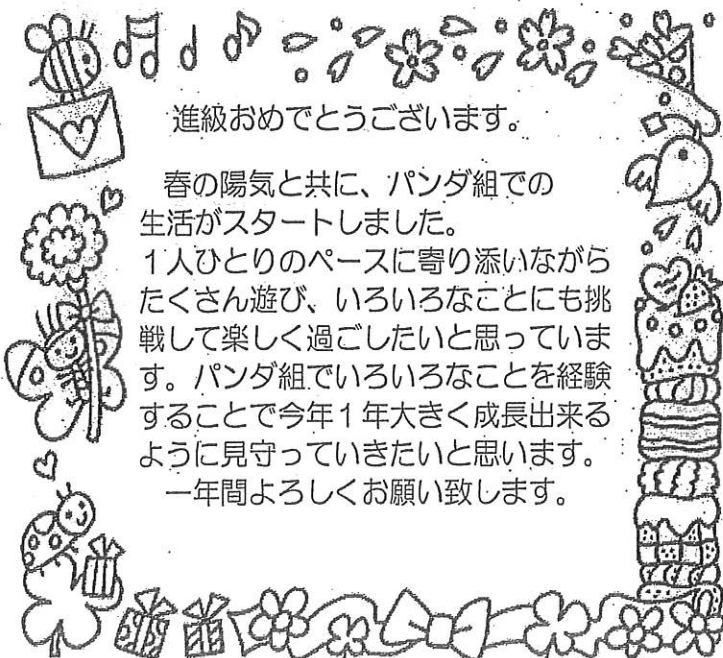 進級おめでとうございます。
春の陽気と共に、パンダ組での
生活がスタートしました。
1人ひとりのペースに寄り添いながら
たくさん遊び、いろいろなことにも挑
戦して楽しく過ごしたいと思っていま
す。パンダ組でいろいろなことを経験
することで今年1年大きく成長出来る
ように見守っていきたいと思います。
一年間よろしくお願い致します。